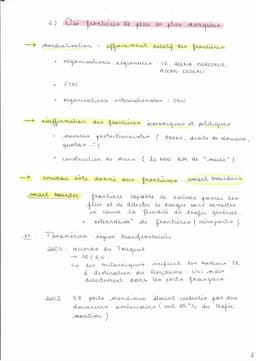 2) Des frontières de plus en plus marquées
→ mondialisation = effacement relatif des frontières
• organisations régionales : UE, ALENA, MERCOSUR,
ASEAN, CEDEAO
• FTN
• organisations internationales : ONU
→ réaffirmation des frontières économiques et politiques
• mesures protectionnistes ( taxes, droits de douane,
quotas...)
• construction de murs ( 20 000 km de "murs" )
→ nouveau rôle donné aux frontières : smart boarders
smart boarder : frontière capable de laisser passer les
flux et de détecter le danger sans remettre
en cause la fluidité du trafic générée
• externalisation de frontières ( aéroports )
transfrontalière
accords du Touquet
→ FR / RU
→ les britanniques vérifient les bateaux FR
à destination du Royaume-Uni mais
directement dans les ports français
58 ports mondiaux étaient contrôlés par des
douaniers américains ( soit 85% du trafic
maritime )